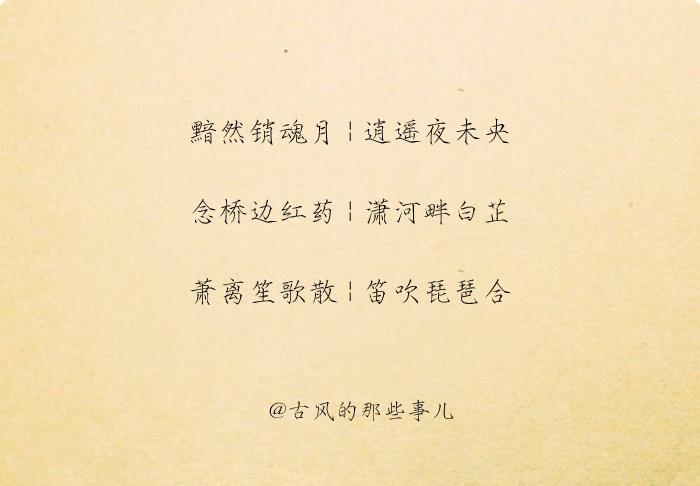 黯然销魂月 | 逍遥夜未央
念桥边红药 | 潇河畔白芷
萧离笙歌散 | 笛吹琵琶合
@古风的那些事儿